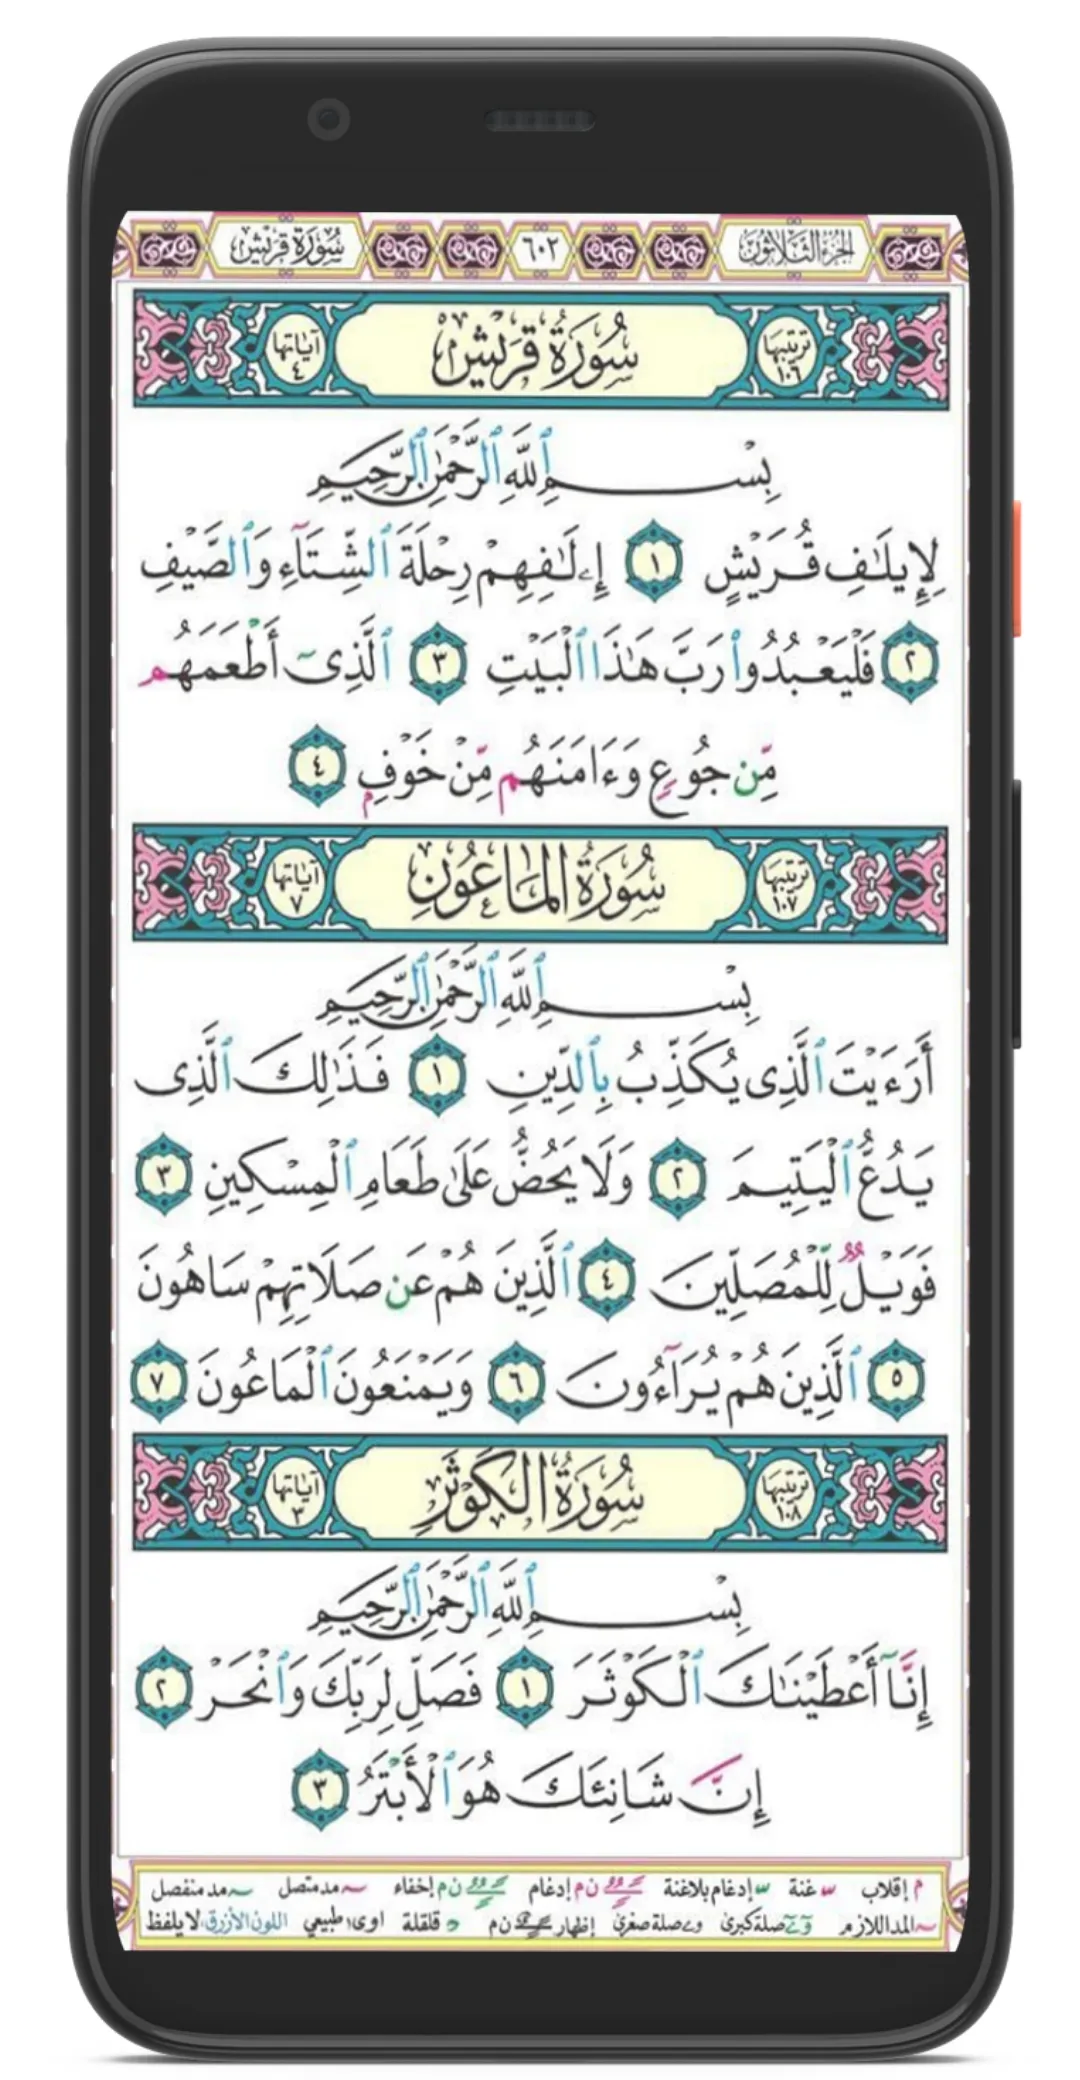 الجزء الثلاثون ٦٠٢ سورة قريش
ترتيبها ١٠٦ سُورَةُ قُرَيْشٍ آياتها ٤
بِسْمِ ٱللَّهِ ٱلرَّحْمَٰنِ ٱلرَّحِيمِ
لِإِيلَٰفِ قُرَيْشٍ ١ إِۦلَٰفِهِمْ رِحْلَةَ ٱلشِّتَآءِ وَٱلصَّيْفِ
٢ فَلْيَعْبُدُوا۟ رَبَّ هَٰذَا ٱلْبَيْتِ ٣ ٱلَّذِىٓ أَطْعَمَهُم
مِّن جُوعٍ وَءَامَنَهُم مِّنْ خَوْفٍۭ ٤
ترتيبها ١٠٧ سُورَةُ المَاعُونِ آياتها ٧
بِسْمِ ٱللَّهِ ٱلرَّحْمَٰنِ ٱلرَّحِيمِ
أَرَءَيْتَ ٱلَّذِى يُكَذِّبُ بِٱلدِّينِ ١ فَذَٰلِكَ ٱلَّذِى
يَدُعُّ ٱلْيَتِيمَ ٢ وَلَا يَحُضُّ عَلَىٰ طَعَامِ ٱلْمِسْكِينِ ٣
فَوَيْلٌ لِّلْمُصَلِّينَ ٤ ٱلَّذِينَ هُمْ عَن صَلَاتِهِمْ سَاهُونَ
٥ ٱلَّذِينَ هُمْ يُرَآءُونَ ٦ وَيَمْنَعُونَ ٱلْمَاعُونَ ٧
ترتيبها ١٠٨ سُورَةُ الكَوْثَرِ آياتها ٣
بِسْمِ ٱللَّهِ ٱلرَّحْمَٰنِ ٱلرَّحِيمِ
إِنَّآ أَعْطَيْنَٰكَ ٱلْكَوْثَرَ ١ فَصَلِّ لِرَبِّكَ وَٱنْحَرْ ٢
إِنَّ شَانِئَكَ هُوَ ٱلْأَبْتَرُ ٣
م إقلاب غنة إدغام بلا غنة ن م إدغام ن م إخفاء مد متصل مد منفصل
المد اللازم صلة كبرى صلة صغرى إظهار ن م قلقلة اوى طبيعي اللون الأزرق لا يلفظ